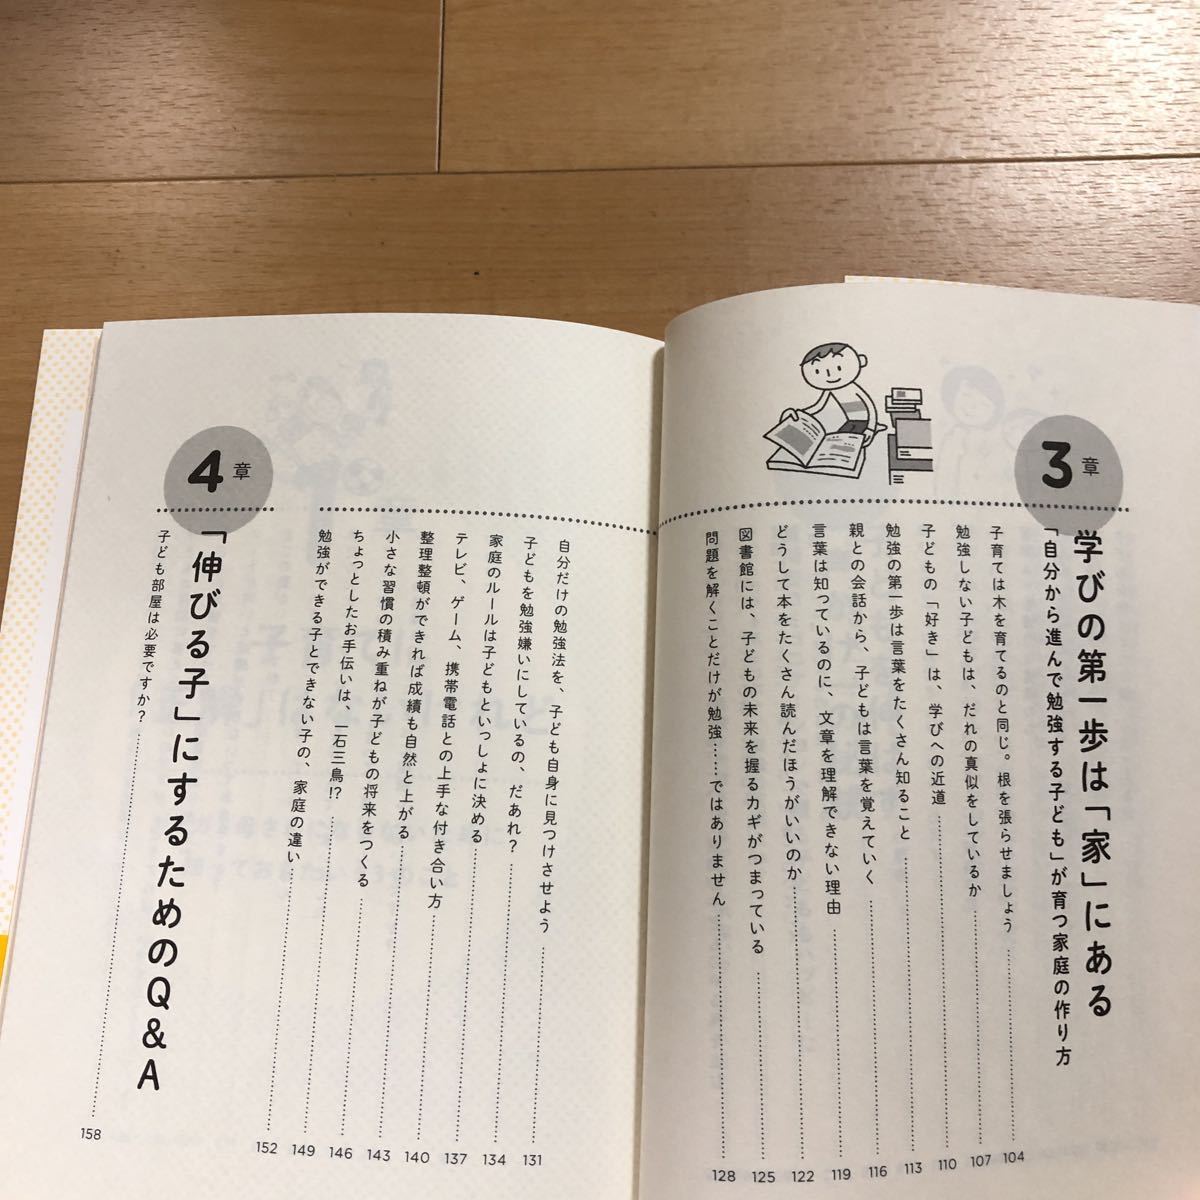 3章
学びの第一歩は「家」にある
「自分から進んで勉強する子ども」が育つ家庭の作り方
子育ては木を育てるのと同じ。根を張らせましょう 104
勉強しない子どもは、だれの真似をしているか 107
子どもの「好き」は、学びへの近道 110
勉強の第一歩は言葉をたくさん知ること 113
親との会話から、子どもは言葉を覚えていく 116
言葉は知っているのに、文章を理解できない理由 119
どうして本をたくさん読んだほうがいいのか 122
図書館には、子どもの未来を握るカギがつまっている 125
問題を解くことだけが勉強……ではありません 128
自分だけの勉強法を、子ども自身に見つけさせよう 131
子どもを勉強嫌いにしているの、だあれ? 134
家庭のルールは子どもといっしょに決める 137
テレビ、ゲーム、携帯電話との上手な付き合い方 140
整理整頓ができれば成績も自然と上がる 143
小さな習慣の積み重ねが子どもの将来をつくる 146
ちょっとしたお手伝いは、一石三鳥!? 149
勉強ができる子とできない子の、家庭の違い 152
4章
「伸びる子」にするためのQ&A
子ども部屋は必要ですか? 158